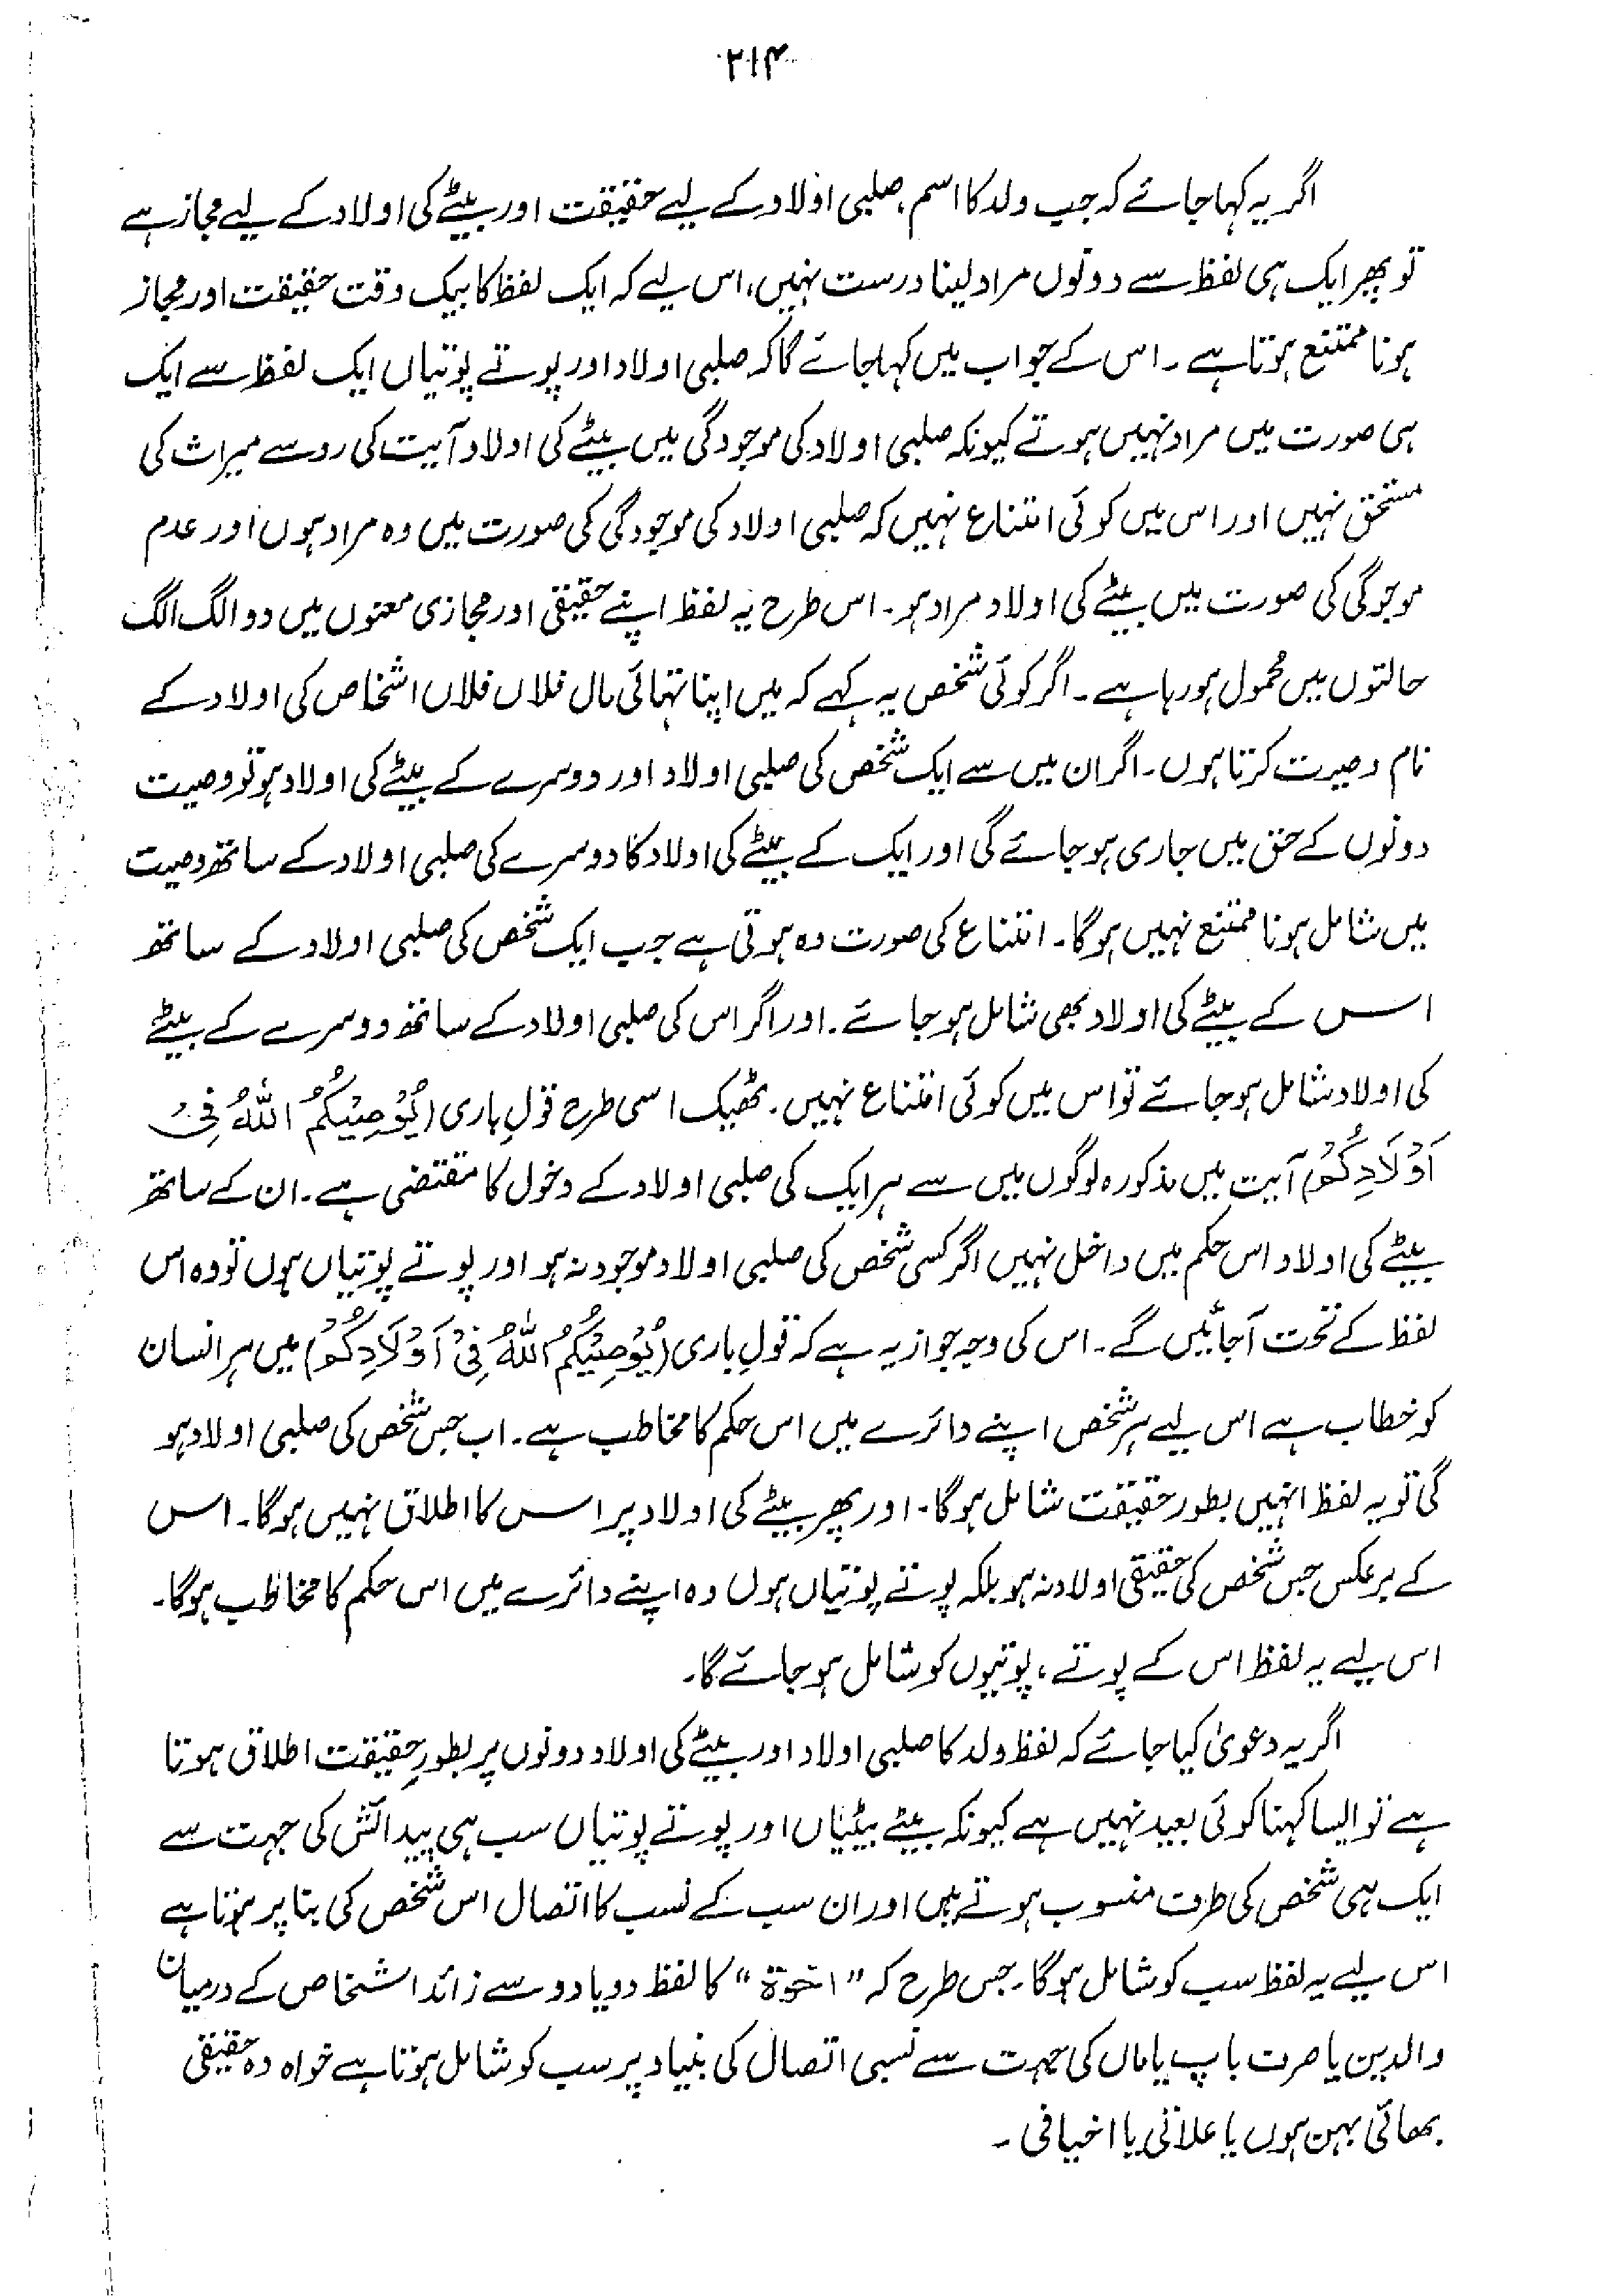 ۲۱۴
اگر یہ کہا جائے کہ جب ولد کا اسم، صلبی اولاد کے لیے حقیقت اور بیٹے کی اولاد کے لیے مجاز ہے
تو پھر ایک ہی لفظ سے دونوں مراد لینا درست نہیں، اس لیے کہ ایک لفظ کا بیک وقت حقیقت اور مجاز
ہونا ممتنع ہوتا ہے۔ اس کے جواب میں کہا جائے گا کہ صلبی اولاد اور پوتے پوتیاں ایک لفظ سے ایک
ہی صورت میں مراد نہیں ہوتے کیونکہ صلبی اولاد کی موجودگی میں بیٹے کی اولاد آیت کی رو سے میراث کی
مستحق نہیں اور اس میں کوئی امتناع نہیں کہ صلبی اولاد کی موجودگی کی صورت میں وہ مراد ہوں اور عدم
موجوگی کی صورت میں بیٹے کی اولاد مراد ہو۔ اس طرح یہ لفظ اپنے حقیقی اور مجازی معنوں میں دو الگ الگ
حالتوں میں محمول ہو رہا ہے۔ اگر کوئی شخص یہ کہے کہ میں اپنا تہائی مال فلاں فلاں اشخاص کی اولاد کے
نام وصیت کرتا ہوں۔ اگر ان میں سے ایک شخص کی صلبی اولاد اور دوسرے کے بیٹے کی اولاد ہو تو وصیت
دونوں کے حق میں جاری ہو جائے گی اور ایک کے بیٹے کی اولاد کا دوسرے کی صلبی اولاد کے ساتھ وصیت
میں شامل ہونا ممتنع نہیں ہوگا۔ امتناع کی صورت وہ ہوتی ہے جب ایک شخص کی صلبی اولاد کے ساتھ
اس کے بیٹے کی اولاد بھی شامل ہو جائے۔ اور اگر اس کی صلبی اولاد کے ساتھ دوسرے کے بیٹے
کی اولاد شامل ہو جائے تو اس میں کوئی امتناع نہیں۔ ٹھیک اسی طرح قولِ باری (یُوْصِیْکُمُ اللّٰہُ فِیْ
اَوْلَادِکُمْ) آیت میں مذکورہ لوگوں میں سے ہر ایک کی صلبی اولاد کے دخول کا مقتضی ہے۔ ان کے ساتھ
بیٹے کی اولاد اس حکم میں داخل نہیں اگر کسی شخص کی صلبی اولاد موجود نہ ہو اور پوتے پوتیاں ہوں تو وہ اس
لفظ کے تحت آجائیں گے۔ اس کی وجہ جواز یہ ہے کہ قولِ باری (یُوْصِیْکُمُ اللّٰہُ فِیْ اَوْلَادِکُمْ) میں ہر انسان
کو خطاب ہے اس لیے ہر شخص اپنے دائرے میں اس حکم کا مخاطب ہے۔ اب جس شخص کی صلبی اولاد ہو
گی تو یہ لفظ انہیں بطور حقیقت شامل ہوگا۔ اور پھر بیٹے کی اولاد پر اس کا اطلاق نہیں ہوگا۔ اس
کے برعکس جس شخص کی حقیقی اولاد نہ ہو بلکہ پوتے پوتیاں ہوں وہ اپنے دائرے میں اس حکم کا مخاطب ہوگا۔
اس لیے یہ لفظ اس کے پوتے، پوتیوں کو شامل ہو جائے گا۔
اگر یہ دعویٰ کیا جائے کہ لفظ ولد کا صلبی اولاد اور بیٹے کی اولاد دونوں پر بطورِ حقیقت اطلاق ہوتا
ہے تو ایسا کہنا کوئی بعید نہیں ہے کیونکہ بیٹے بیٹیاں اور پوتے پوتیاں سب ہی پیدائش کی جہت سے
ایک ہی شخص کی طرف منسوب ہوتے ہیں اور ان سب کے نسب کا اتصال اس شخص کی بنا پر ہوتا ہے
اس لیے یہ لفظ سب کو شامل ہوگا۔ جس طرح کہ "اخوۃ" کا لفظ دو یا دو سے زائد اشخاص کے درمیان
والدین یا صرف باپ یا ماں کی جہت سے نسبی اتصال کی بنیاد پر سب کو شامل ہوتا ہے خواہ وہ حقیقی
بھائی بہن ہوں یا علاتی یا اخیافی۔